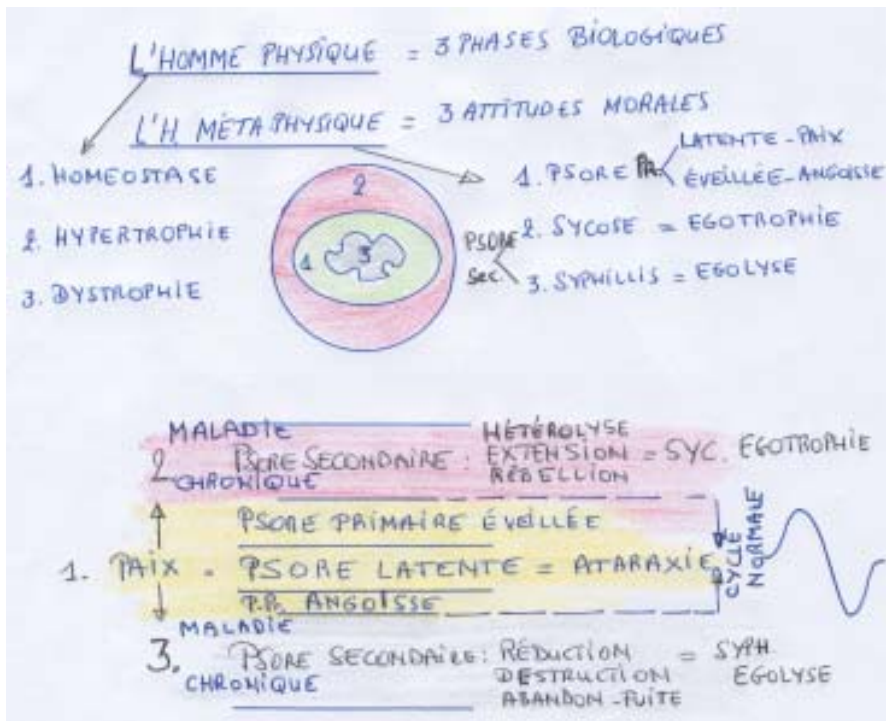 L'HOMME PHYSIQUE = 3 PHASES BIOLOGIQUES
L'H. MÉTAPHYSIQUE = 3 ATTITUDES MORALES
1. HOMEOSTASE
2. HYPERTROPHIE
3. DYSTROPHIE
2
1
3
1. PSORE PR. LATENTE - PAIX
ÉVEILLÉE - ANGOISSE
PSORE SEC.
2. SYCOSE = EGOTROPHIE
3. SYPHILLIS = EGOLYSE
MALADIE
2 PSORE SECONDAIRE : HÉTÉROLYSE
EXTENSION = SYC. EGOTROPHIE
RÉBELLION
CHRONIQUE
PSORE PRIMAIRE ÉVEILLÉE
1. PAIX - PSORE LATENTE = ATARAXIE
P.PR. ANGOISSE
CYCLE
NORMALE
MALADIE
3. PSORE SECONDAIRE : RÉDUCTION = SYPH.
CHRONIQUE DESTRUCTION EGOLYSE
ABANDON - FUITE